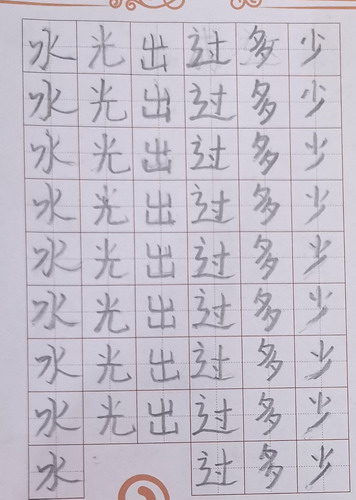 水光出过多少
水光出过多少
水光出过多少
水光出过多少
水光出过多少
水光出过多少
水光出过多少
水光出过多少
水过多少